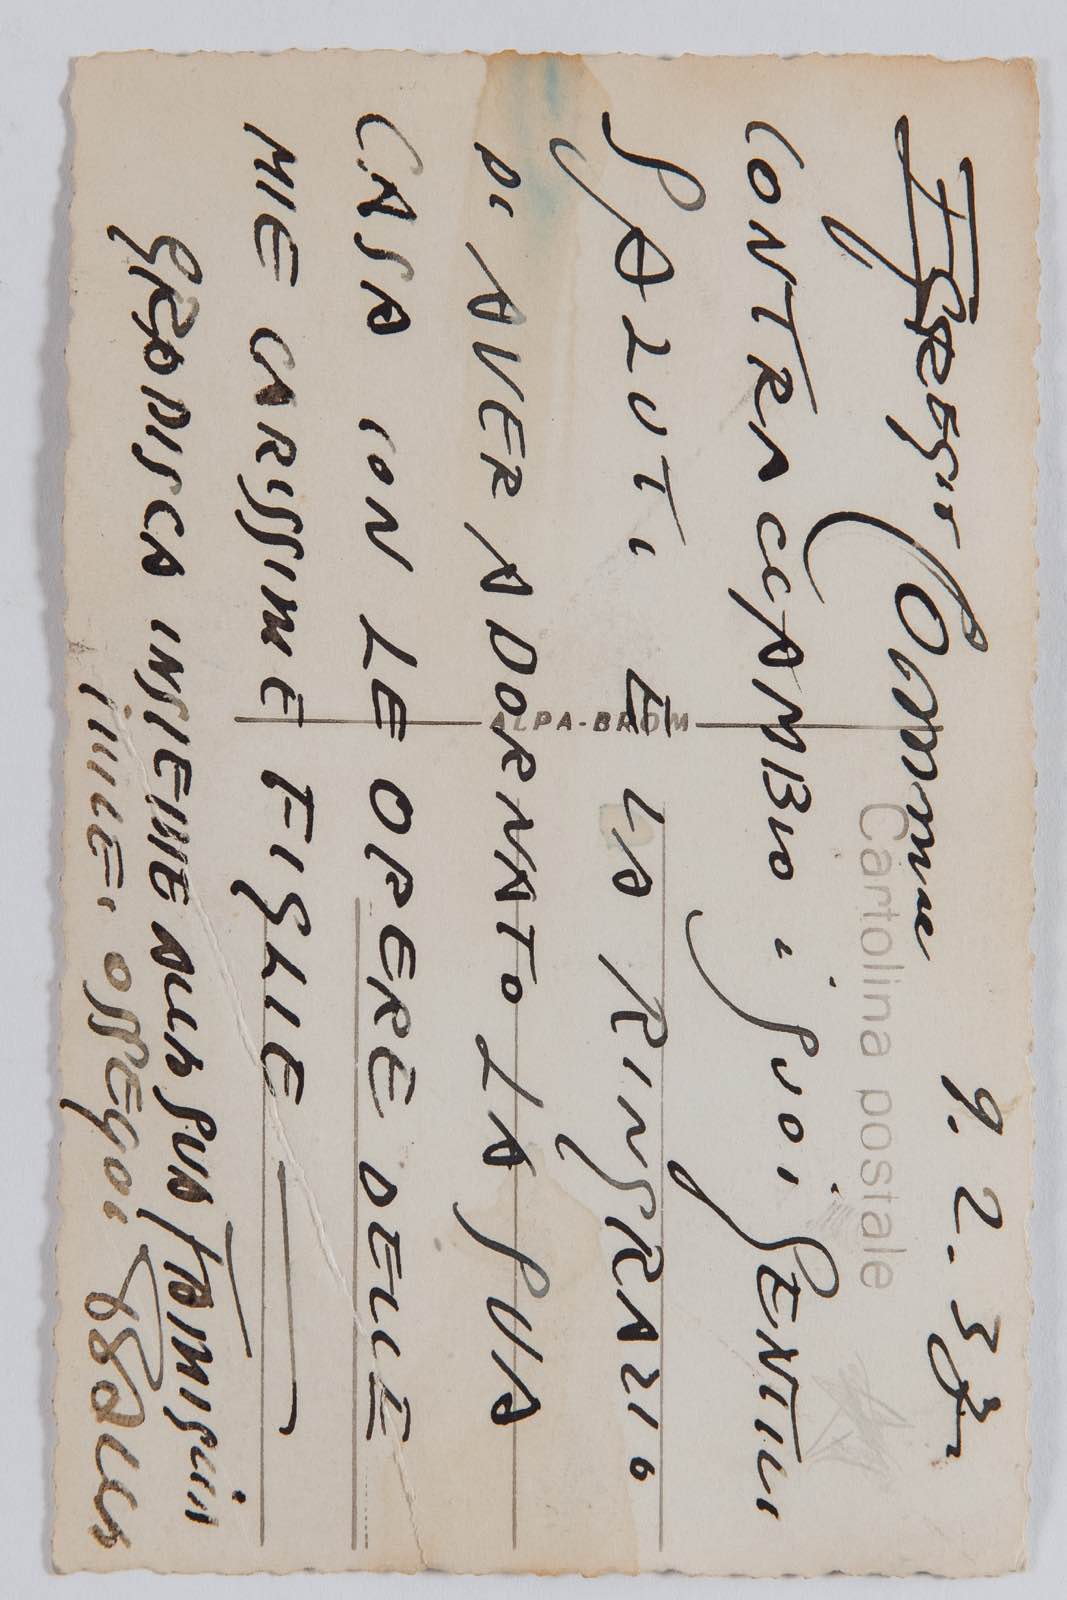 9. 2. 33
Egregio
CONTRACCAMBIO i SUOi GENTiLi
SALUTi E LA RINGRAZIO
Di AVER ADORNATO LA SUA
CASA CON LE OPERE DELLE
MIE CARISSIME FIGLIE
GRADISCA INSIEME ALLA SUA FAMIGLIA
i miEi OSSEQUi
Cartolina postale
ALPA-BROM